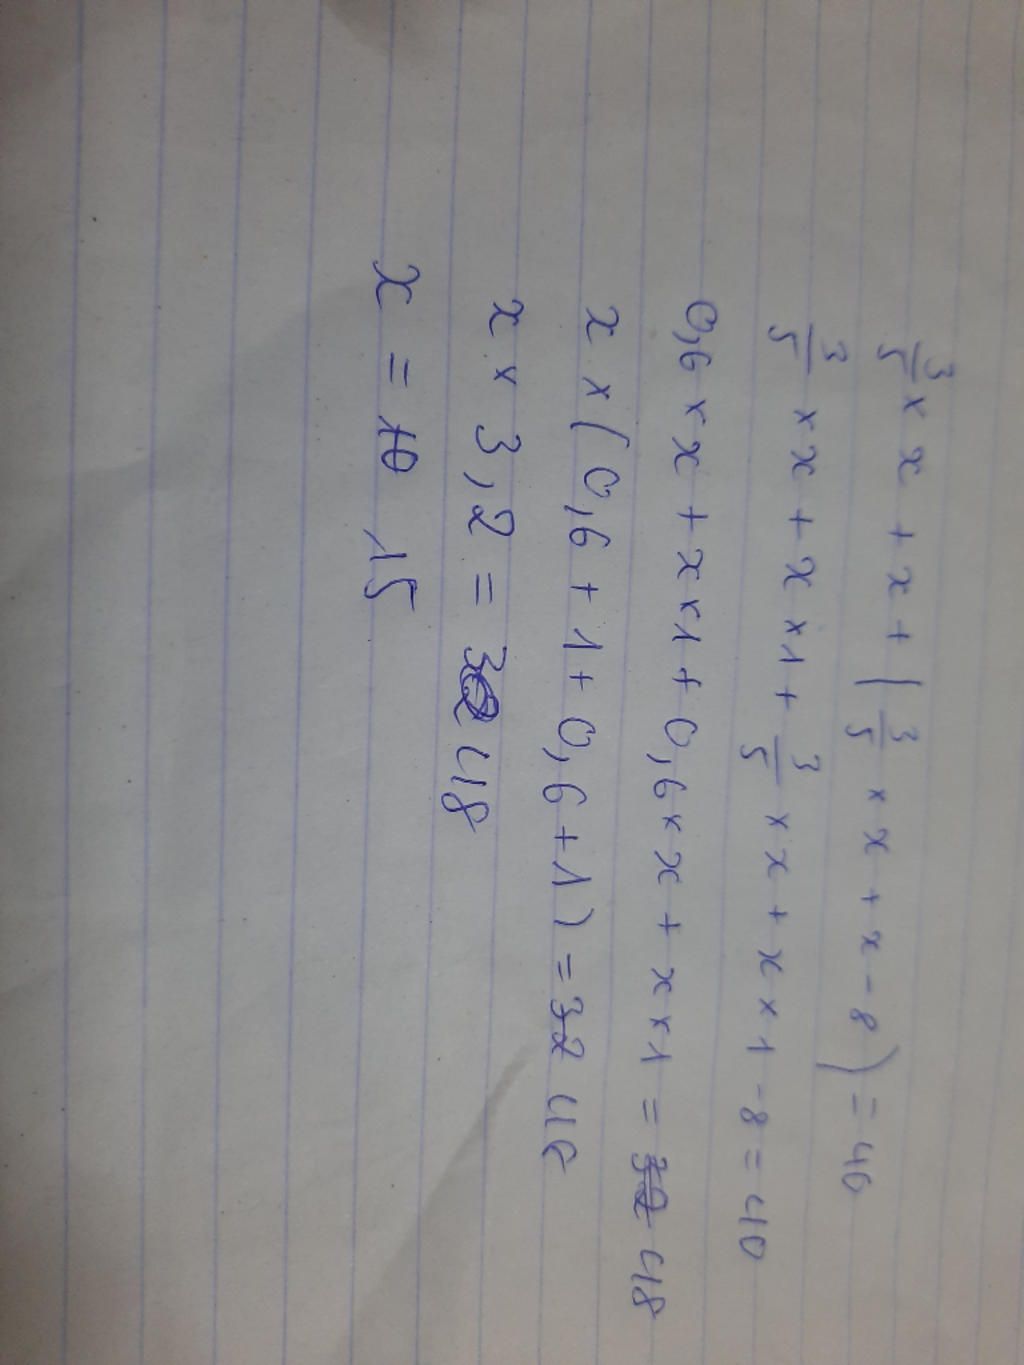 3/5 × x + x + (3/5 × x + x - 8) = 40
3/5 × x + x × 1 + 3/5 × x + x × 1 - 8 = 40
0,6 × x + x × 1 + 0,6 × x + x × 1 = 32 48
x × (0,6 + 1 + 0,6 + 1) = 32 48
x × 3,2 = 32 48
x = 10 15